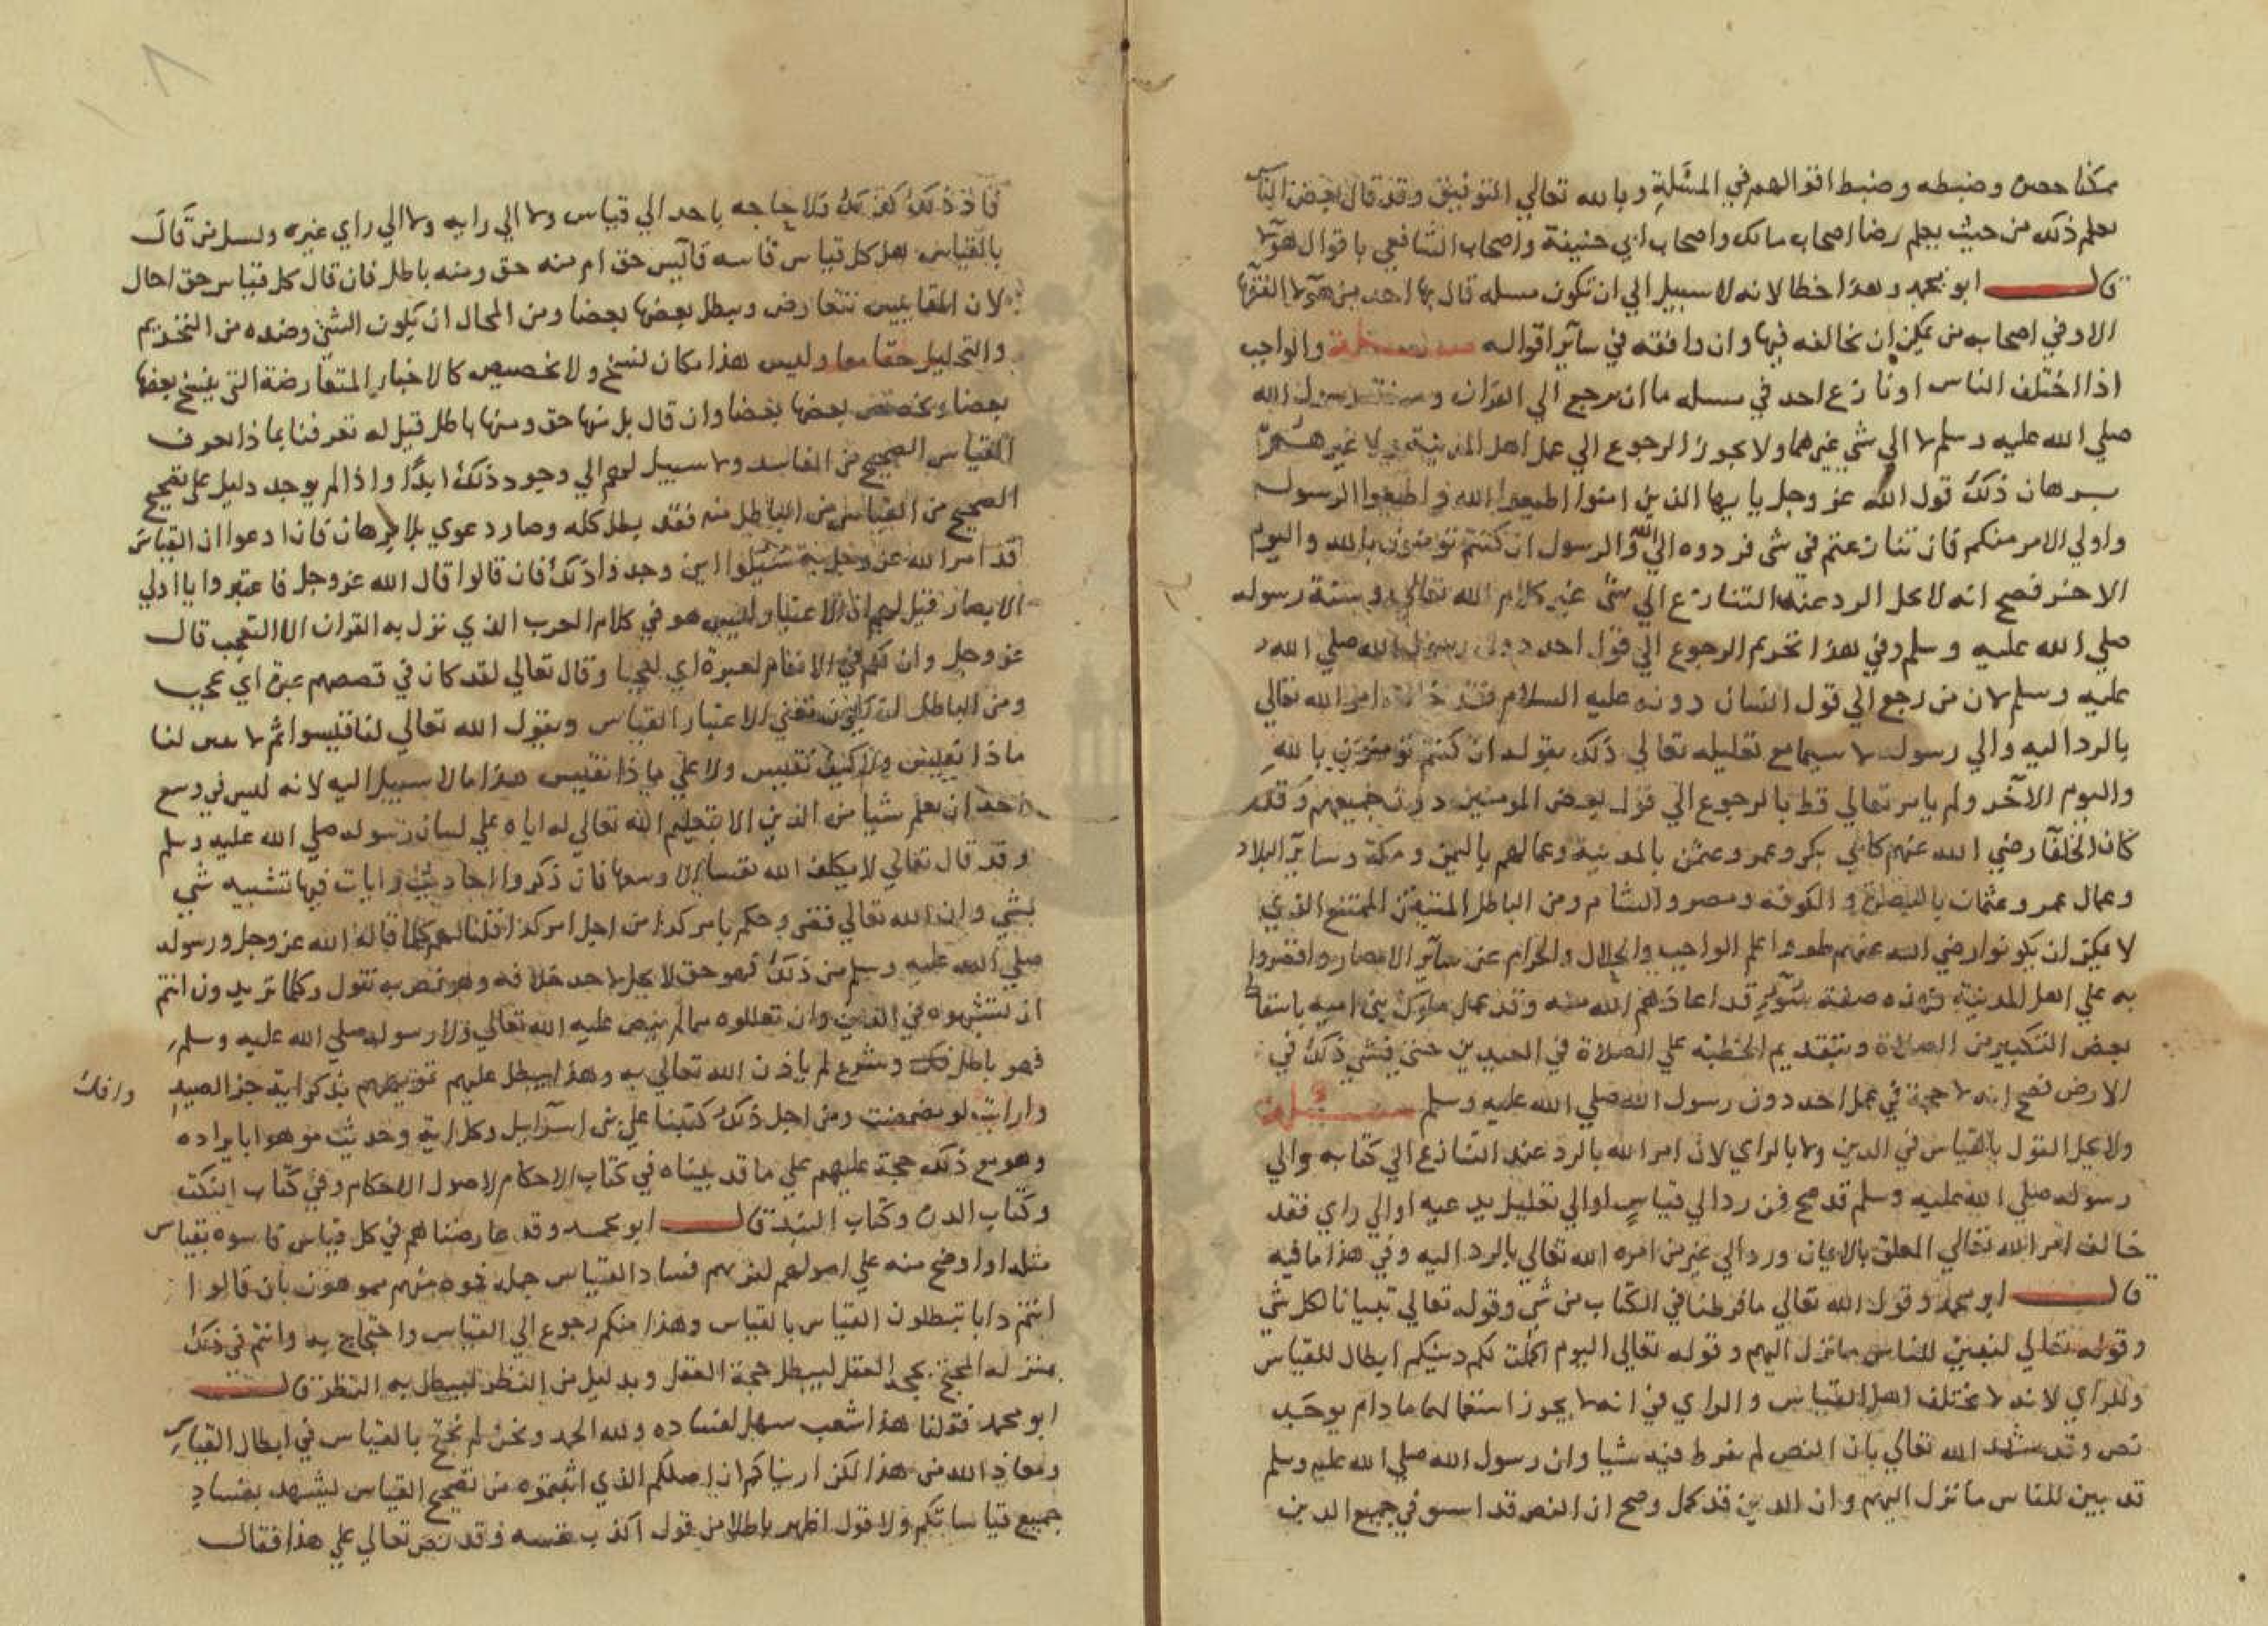 ممكنا حصره وضبطه وضبط اقوالهم في المسَّلةِ وبالله تعالي التوفيق وقد قال بعض الناس
يعلم ذلك من حيث يعلم رضا اصحاب مالك واصحاب ابي حنيفة واصحاب الشافعي باقوال هولا
قال ابو محمد وهذا خطا لانه لا سبيل الي ان تكون مسله قال بها احد من هولا الفقها
الا وفي اصحابه من يمكن ان يخالفه فيها وان وافقه في سآير اقواله مسلة والواجب
اذا اختلف الناس او نازع احد في مسله ما ان يرجع الي القران وسنة رسول الله
صلي الله عليه وسلم لا الي شي غيرهما ولا يجوز الرجوع الي عمل اهل المدينة ولا غيرهم
برهان ذلك قول الله عز وجل يا يها الذين امنوا اطيعوا الله واطيعوا الرسول
واولي الامر منكم فان تنازعتم في شي فردوه الي الله والرسول ان كنتم تومنون بالله واليوم
الاخر فصح انه لا يحل الرد عند التنازع الي شي غير كلام الله تعالي وسنة رسوله
صلي الله عليه وسلم وفي هذا تحريم الرجوع الي قول احد دون رسول الله صلي الله
عليه وسلم لان من رجع الي قول انسان دونه عليه السلام فقد خالف امر الله تعالي
بالرد اليه والي رسوله لا سيما مع تعليله تعالي ذلك بقوله ان كنتم تومنون بالله
واليوم الآخر ولم يامر تعالي قط بالرجوع الي قول بعض المومنين دون جميعهم وقد
كان الخلفآ رضي الله عنهم كابي بكر وعمر وعثمن بالمدينة وعمالهم باليمن ومكة وسآير البلاد
وعمال عمر وعثمان بالبصرة والكوفة ومصر والشام ومن الباطل المتيقن الممتنع الذي
لا يمكن ان يكونوا رضي الله عنهم طووا علم الواجب والحلال والحرام عن سآير الامصار واقصروا
به علي اهل المدينة فهذه صفة سوٍّ قد اعاذهم الله منه وقد عمل ملوك بني اميه باسقاط
بعض التكبير من الصلاة وبتقديم الخطبة علي الصلاة في العيدين حتى فشي ذلك في
الارض فصح انه لا حجة في عمل احد دون رسول الله صلي الله عليه وسلم مسلة
ولا يحل القول بالقياس في الدين ولا بالراي لان امر الله بالرد عند التنازع الي كتابه والي
رسوله صلي الله عليه وسلم قد صح فمن رد الي قياسٍ او الي تعليل يدعيه او الي راي فقد
خالف امر الله تعالي المعلق بالايمان ورد الي غير من امره الله تعالي بالرد اليه وفي هذا ما فيه
قال ابو محمد وقول الله تعالي ما فرطنا في الكتاب من شي وقوله تعالي تبيانا لكل شي
وقوله تعالي لتبين للناس ما نزل اليهم وقوله تعالي اليوم اكملت لكم دينكم ابطال للقياس
وللراي لانه لا يختلف اهل القياس والراي في انه لا يجوز استعمالهما ما دام يوجَد
نص وقد شهد الله تعالي بان النص لم يفرط فيه شيا وان رسول الله صلي الله عليه وسلم
قد بين للناس ما نزل اليهم وان الدين قد كمل وصح ان النص قد استوفي جميع الدين
فاذ ذلك كذلك فلا حاجه باحد الي قياس ولا الي رايه ولا الي راي غيره ونسل من قال
بالقياس هل كل قياس قاسه قآيس حق ام منه حق ومنه باطل فان قال كل قياس حق احال
لان المقاييس تتعارض ويبطل بعضها بعضا ومن المحال ان يكون الشي وضده من التحريم
والتحليل حقا معا وليس هذا مكان نسخ ولا تخصيص كالاخبار المتعارضة التي ينسخ بعضها
بعضا ويخصص بعضها بعضا وان قال بل منها حق ومنها باطل قيل له فعرفنا بماذا نعرف
القياس الصحيح من الفاسد ولا سبيل لهم الي وجود ذلك ابدًا واذا لم يوجد دليل علي تصحيح
الصحيح من القياس من الباطل منه فقد بطل كله وصار دعوي بلا برهان فان ادعوا ان القياس
قد امر الله عز وجل به سُئلوا اين وجدوا ذلك فان قالوا قال الله عز وجل فاعتبروا يا اولي
الابصار قيل لهم ان الاعتبار ليس هو في كلام العرب الذي نزل به القران الا التعجب قال
عز وجل وان لكم في الانعام لعبرة اي لعجبا وقال تعالي لقد كان في قصصهم عبرة اي عجب
ومن الباطل ان يكون معني الاعتبار القياس ويقول الله تعالي لنا قيسوا ثم لا يبين لنا
ماذا نقيس ولا كيف نقيس ولا علي ماذا نقيس هذا ما لا سبيل اليه لانه ليس في وسع
احد ان يعلم شيا من الدين الا بتعليم الله تعالي له اياه علي لسان رسوله صلي الله عليه وسلم
وقد قال تعالي لا يكلف الله نفسا الا وسعها فان ذكروا احاديث وايات فيها تشبيه شي
بشي وان الله تعالي قضى وحكم بامر كذا من اجل امر كذا قلنا لهم كلما قاله الله عز وجل ورسوله
صلي الله عليه وسلم من ذلك فهو حق لا يحل لاحد خلافه وهو نص به نقول وكلما تريدون انتم
ان تشبهوه في الدين وان تعللوه مما لم ينص عليه الله تعالي ولا رسوله صلي الله عليه وسلم
فهو باطل وشرع لم ياذن الله تعالي به وهذا يبطل عليهم تمويههم بذكر اية جزا الصيد
وارايت لو مضمضت ومن اجل ذلك كتبنا علي بني اسرآيل وكل اية وحديث موهوا بايراده
وهو مع ذلك حجة عليهم علي ما قد بيناه في كتاب الاحكام لاصول الاحكام وفي كتاب النكت
وكتاب الدرة وكتاب النبذ قال ابو محمد وقد عارضناهم في كل قياس قاسوه بقياس
مثله او اوضح منه علي اصولهم لنريهم فساد القياس جملة فموه منهم مموهون بان قالوا
انتم دابا تبطلون القياس بالقياس وهذا منكم رجوع الي القياس واحتجاج به وانتم في ذلك
بمنزلة المحتج بحجة العقل ليبطل حجة العقل وبدليل من النظر ليبطل به النظر قال
ابو محمد فقلنا هذا شغب سهل افساده ولله الحمد ونحن لم نحتج بالقياس في ابطال القياس
ومعاذ الله من هذا لكن اريناكم ان اصلكم الذي اثبتموه من تصحيح القياس يشهد بفساد
جميع قياساتكم ولا قول اظهر باطلا من قول اكذب نفسه وقد نص تعالي علي هذا فقال